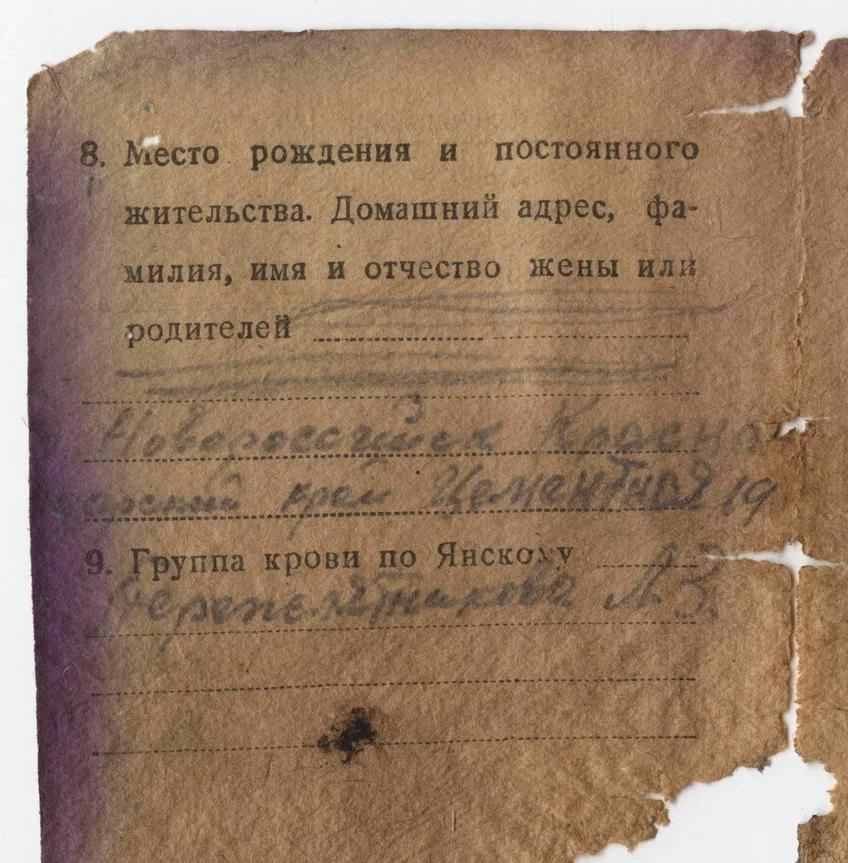 8. Место рождения и постоянного
жительства. Домашний адрес, фа-
милия, имя и отчество жены или
родителей
Новороссийск Красно
дарский край Цементная 19
9. Группа крови по Янскому
Перепелятникова Л. З.